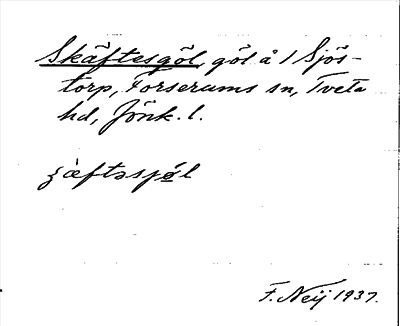 Skäftesgöl, göl å 1 Sjös-
torp, Forserums sn, Tveta
hd, Jönk. l.
ʒàftəspǿl
F. Neij 1937.